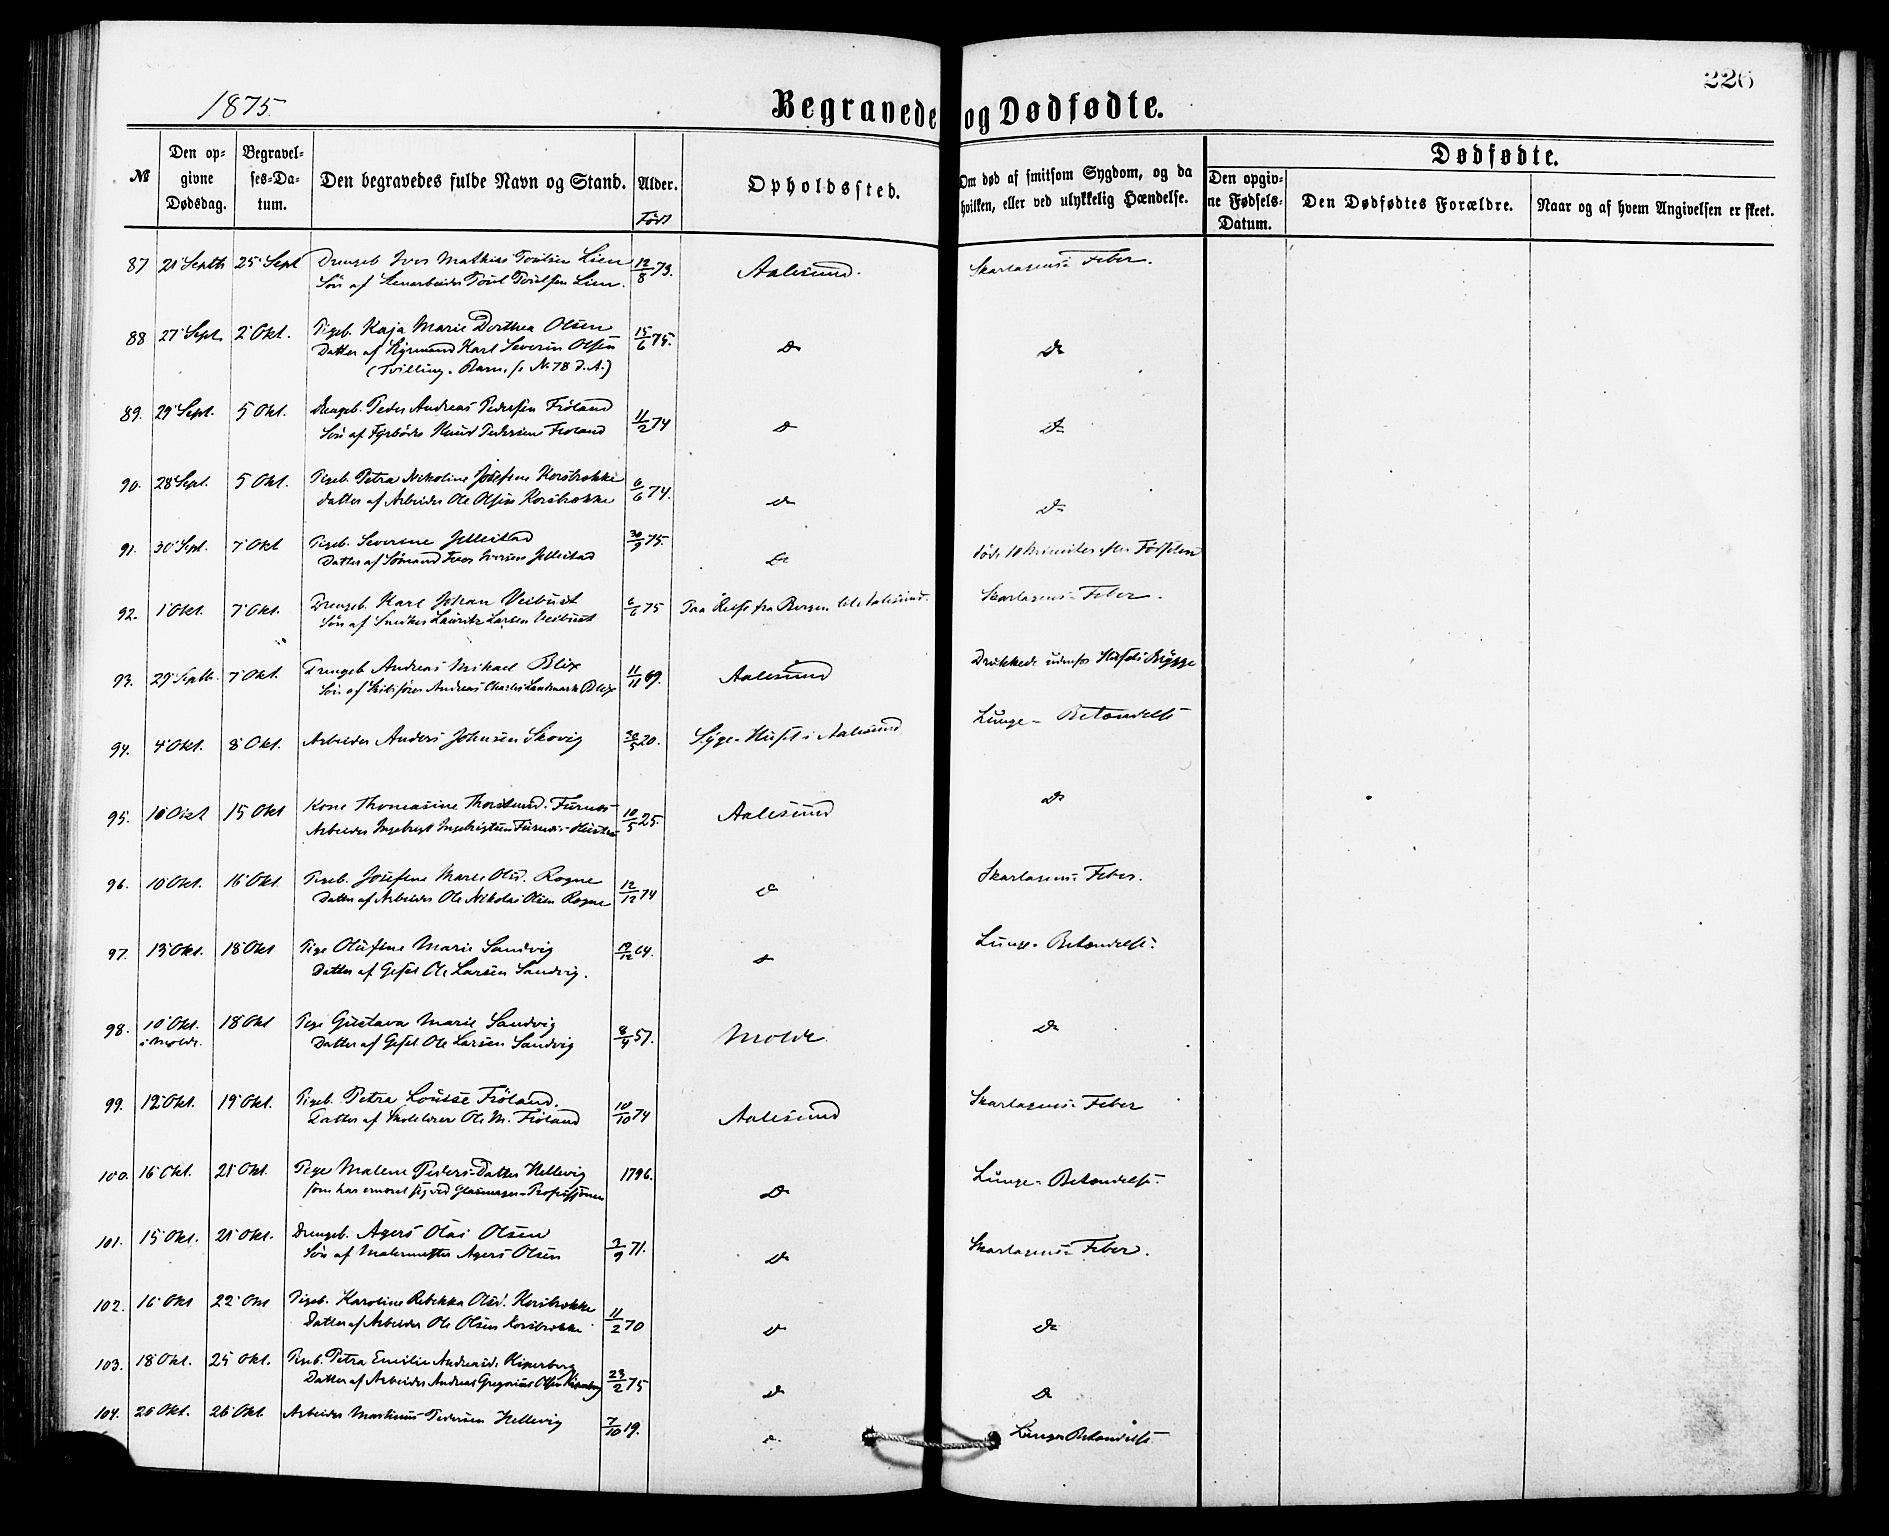 226
1875.
Begravede og Dødfødte.
Dødfødte.
№
Den op-
givne
Dødsdag.
Begravel-
ses-Da-
tum.
Den begravedes fulde Navn og Stand.
Alder.
Født
Opholdssted.
Om død af smitsom Sygdom, og da
hvilken, eller ved ulykkelig Hændelse.
Den opgiv-
ne Fødsels-
Datum.
Den Dødfødtes Forældre.
Naar og af hvem Angivelsen er skeet.
87 21 Septb 25 Sept Drengeb. Iver Mathias Lien 12/8 73. Aalesund. Skarlagens-Feber.
Søn af Lien.
88 27 Sept. 2 Okt. Pigeb. Kaja Marie Dorthea Olsen 15/6 75. Do Do
Datter af Styrmand Karl Severin Olsen
(Tvilling-Barn, s. N. 78 d. A.)
89. 29 Sept. 5 Okt. Drengeb. Peder Andreas Pedersen Frøland 11/2 74 Do Do
Søn af Fyrbøder Knud Pedersen Frøland
90. 28 Sept. 5 Okt. Pigeb. Petra Nikoline Josefine Korsbrække 6/6 74. Do Do
Datter af Arbeider Ole Olsen Korsbrække
91. 30 Sept. 7 Okt Pigeb. Severine Jellestad 30/9 75. Do døde 10 Minuter efter Fødselen
Datter af Sømand Iver Iversen Jellestad
92. 1 Okt. 7 Okt. Drengeb. Karl Johan Veibust 6/6 75 Paa Reise fra Bergen til Aalesund. Skarlagens-Feber.
Søn af Snedker Lauritz Larsen Veibust
93. 29 Septb. 7 Okt. Drengeb. Andreas Mikael Blix 11/11 69. Aalesund Druknede udenfor Brygge
Søn af Skibsfører Andreas Charles Landmark Blix
94. 4 Okt. 8 Okt. Arbeider Anders Johnsen Skovig 30/5 20. Syge-Huset i Aalesund Lunge-Betændelse
95. 10 Okt 15 Okt Kone Thomasine Thorsteind. Furnes 10/5 25. Aalesund Do
Arbeider Ingebrigt Ingebrigtsen Furnes' Hustru
96. 10 Okt. 16 Okt. Pigeb. Josefine Marie Olsd. Rogne 12/12 74 Do Skarlagens-Feber.
Datter af Arbeider Ole Nikolai Olsen Rogne
97. 13 Okt. 18 Okt Pige Olufine Marie Sandvig 19/12 64. Do Lunge-Betændelse.
Datter af Gesel Ole Larsen Sandvig.
98. 10 Okt. 18 Okt Pige Gustava Marie Sandvig 8/4 57. Molde Do
i Molde. Datter af Gesel Ole Larsen Sandvig
99. 12 Okt. 19 Okt. Pigeb. Petra Louise Frøland. 10/10 74 Aalesund Skarlagens-Feber
Datter af Skolelærer Ole M. Frøland
100. 16 Okt. 21 Okt. Pige Malene Peders-Datter Hellevig 1796. Do Lunge-Betændelse.
som har ernæret sig ved Glasmager-Professionen
101. 15 Okt. 21 Okt. Drengeb. Agers Olai Olsen 3/9 71. Do Skarlagens-Feber.
Søn af Malermester Agers Olsen
102. 16 Okt 22 Okt Pigeb. Karoline Rebekka Olsd. Korsbrække 11/2 70 Do Do
Datter af Arbeider Ole Olsen Korsbrække
103. 18 Okt. 25 Okt. Pigeb. Petra Emilie Andreasd. Kiperberg 23/2 75 Do Do
Datter af Arbeider Andreas Gregorius Olsen Kiperberg
104. 20 Okt. 26 Okt. Arbeider Martinus Pedersen Hellevig 7/10 19. Do Lunge Betændelse